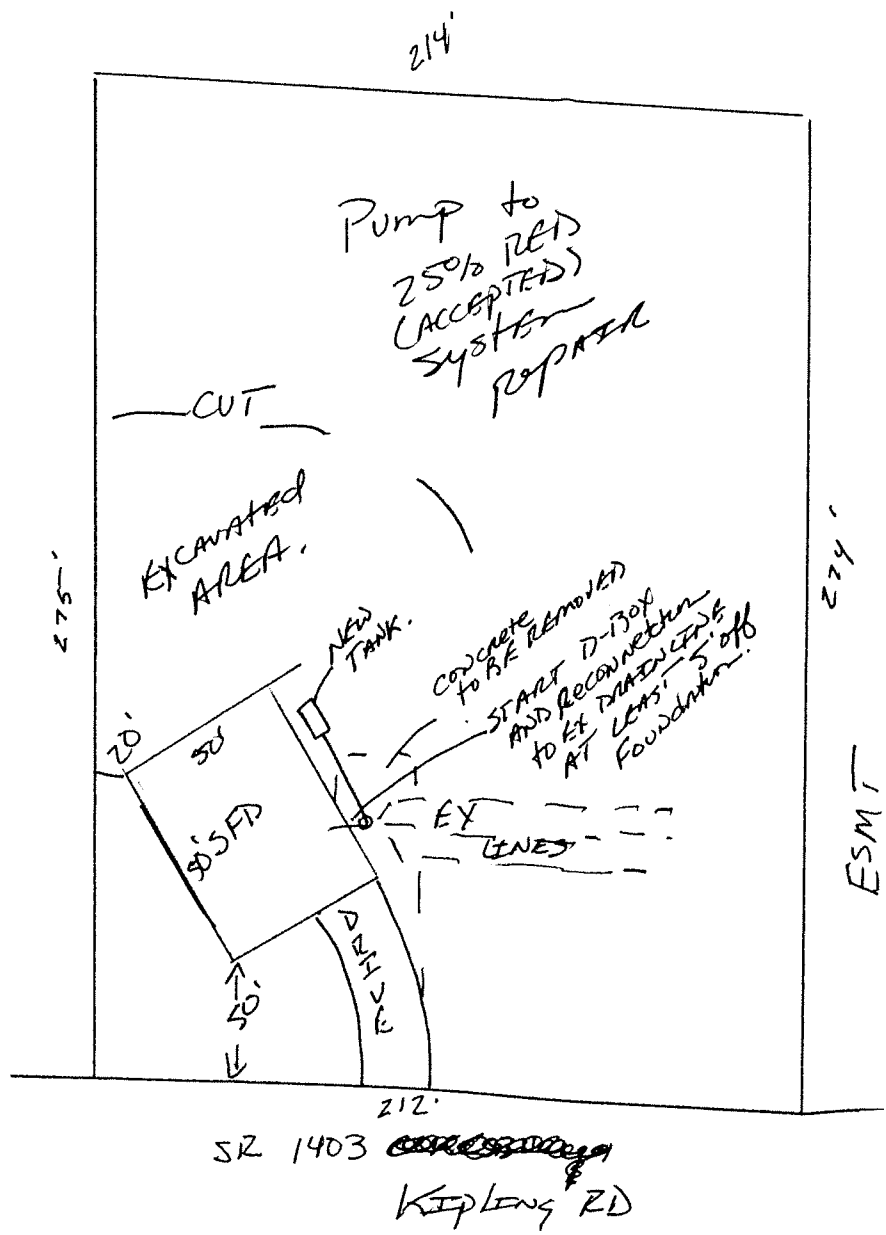 214'
Pump to
25% RED
(ACCEPTED)
SYSTEM
REPAIR
CUT
EXCAVATED
AREA.
275'
274'
NEW
TANK.
CONCRETE
TO BE REMOVED
START D-BOX
AND RECONNECTION
TO EX DRAINLINE
AT LEAST 5' OFF
FOUNDATION.
20'
50'
50' SFD
EX
LINES
ESMT
DRIVE
50'
212'
SR 1403
KIPLING RD